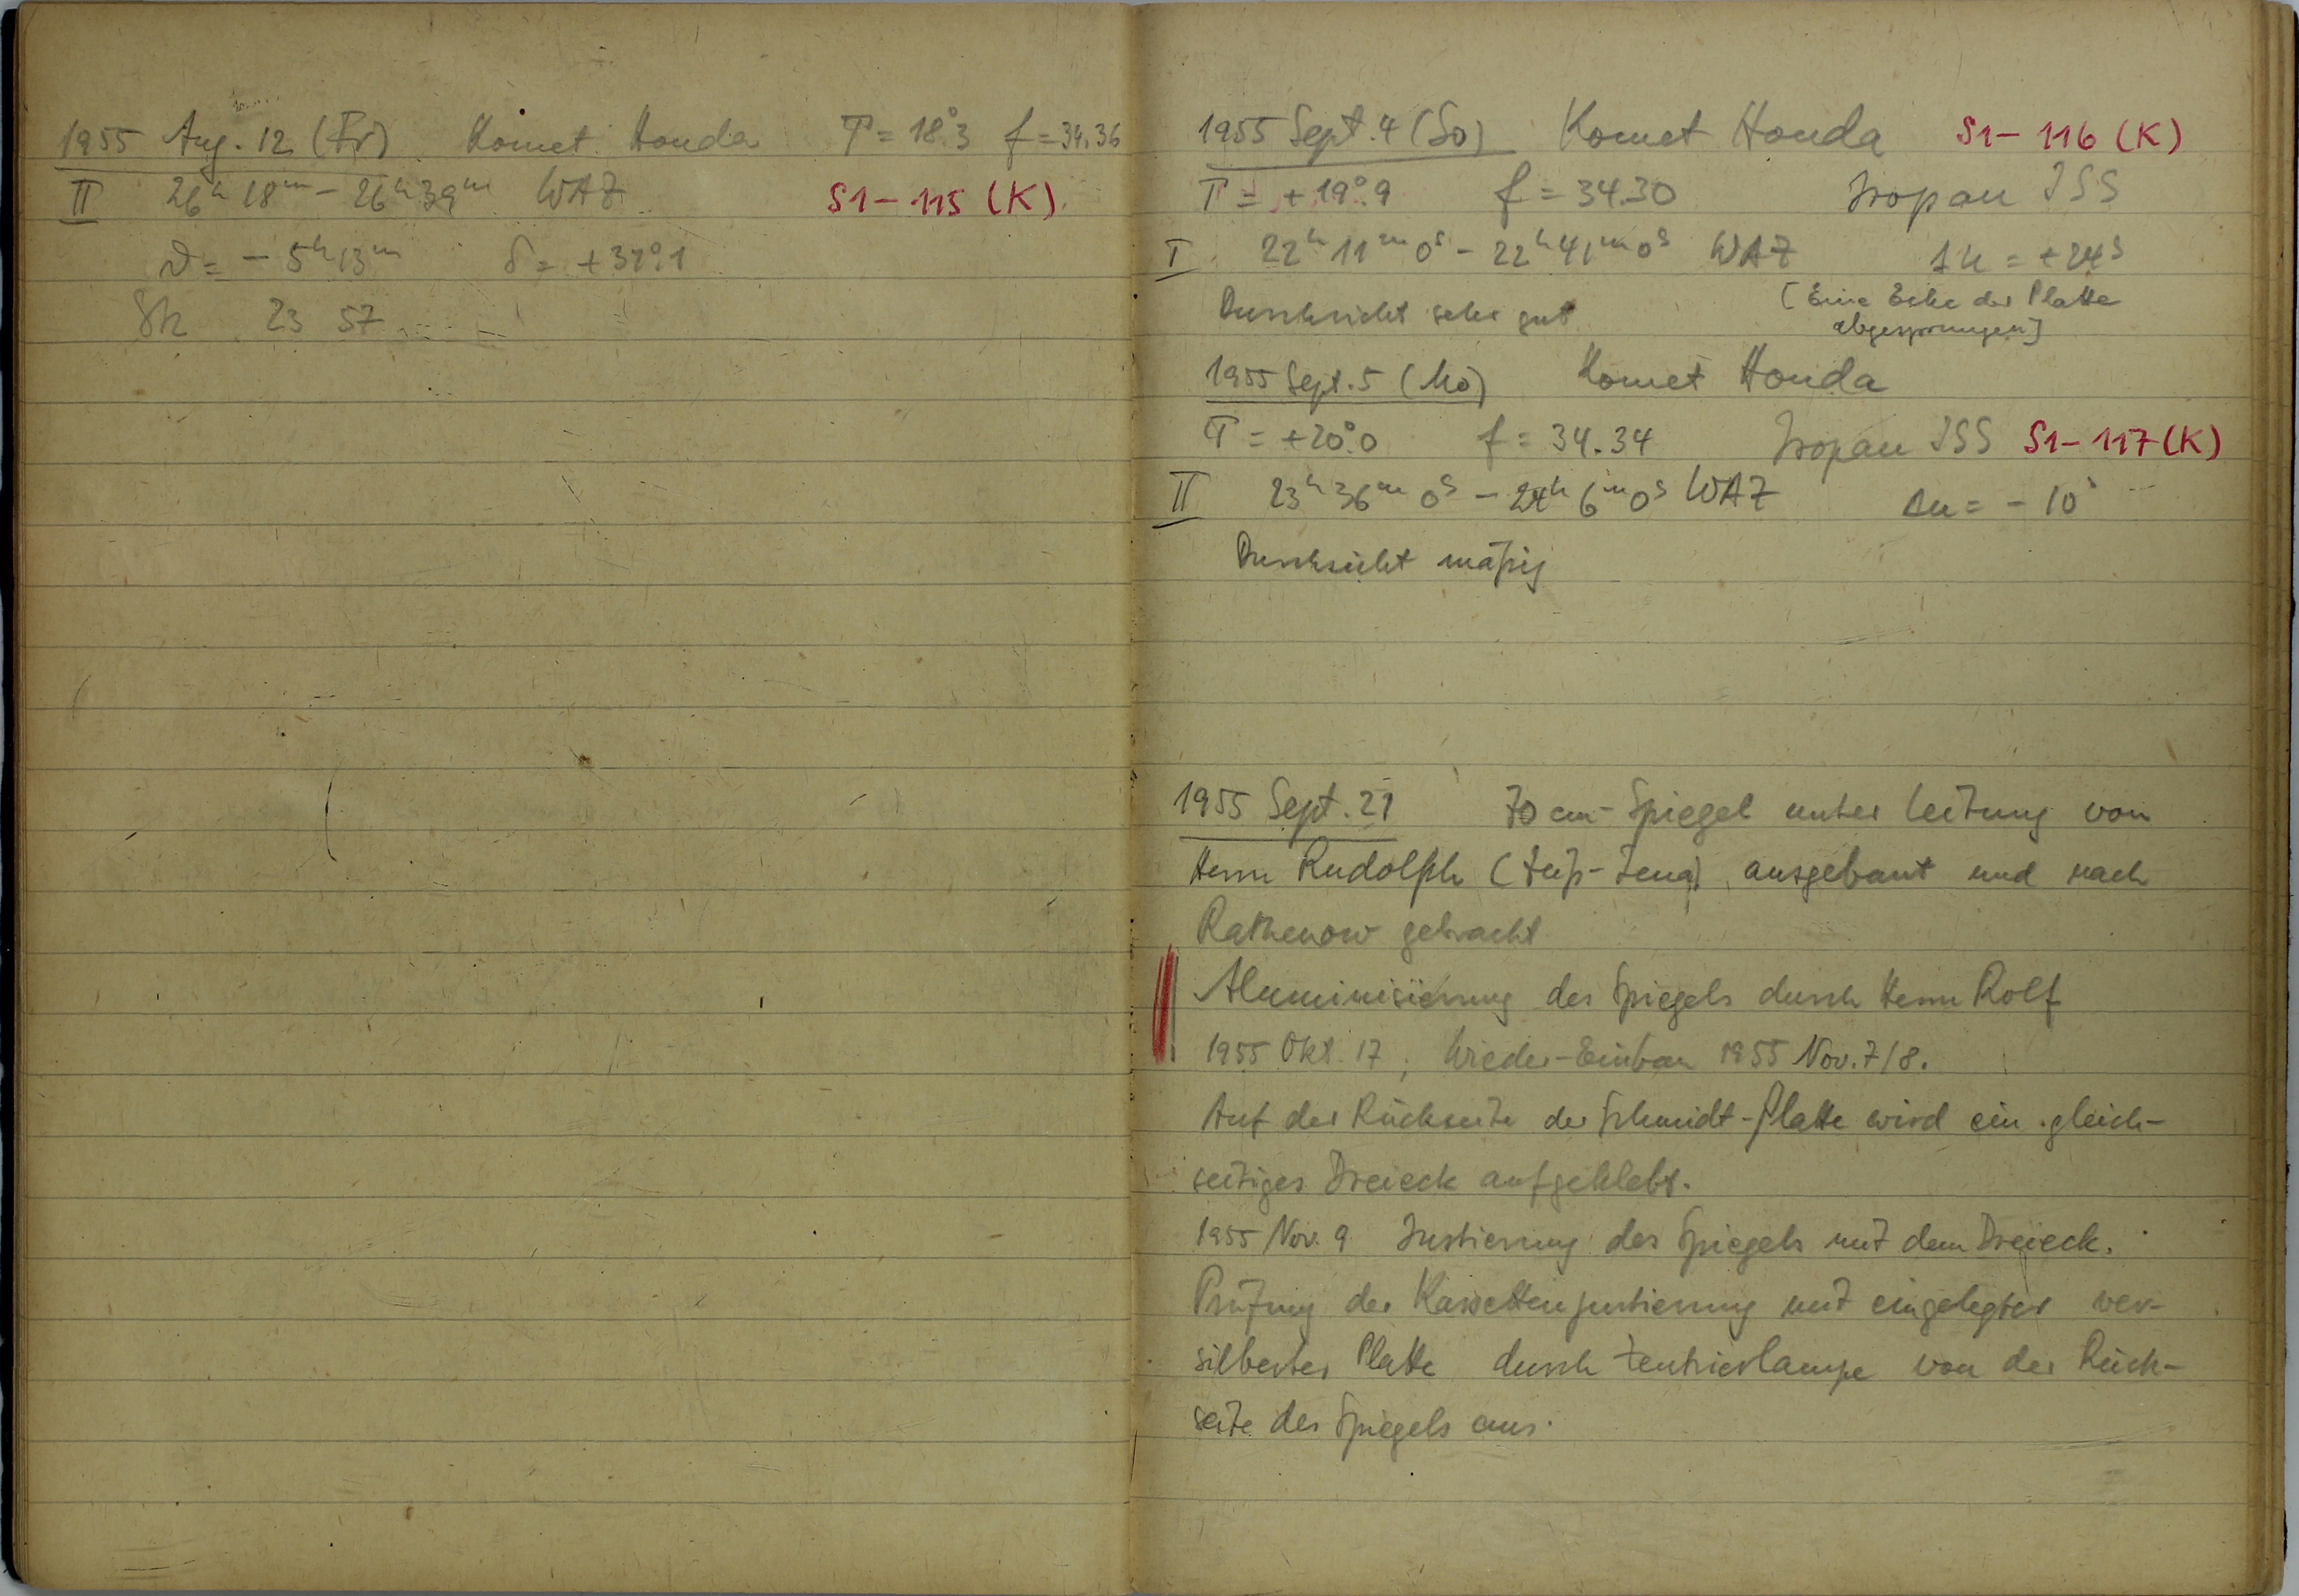 1955 Aug. 12 (Fr) Komet Honda T = 18°.3 f = 34.36
II 26h 18m – 26h 39m WAZ S1-115 (K)
ϑ = - 5h 13m δ = +37°.1
Sk 23 57
1955 Sept. 4 (So) Komet Honda S1-116 (K)
T = +19°.9 f = 34.30 Isopan ISS
I 22h 11m 0s - 22h 41m 0s WAZ Δu = +24s
Durchsicht sehr gut (Eine Ecke der Platte
abgesprungen)
1955 Sept. 5 (Mo) Komet Honda
T = +20°.0 f = 34.34 Isopan ISS S1-117 (K)
II 23h 36m 0s – 24h 6m 0s WAZ Δu = - 10s
Durchsicht mäßig
1955 Sept. 21 70 cm-Spiegel unter Leitung von
Herrn Rudolph (Zeiß-Jena) ausgebaut und nach
Rathenow gebracht
Aluminisierung des Spiegels durch Herrn Rolf
1955 Okt. 17, Wieder-Einbau 1955 Nov. 7/8.
Auf der Rückseite der Schmidt-Platte wird ein gleich-
seitiges Dreieck aufgeklebt.
1955 Nov. 9 Justierung des Spiegels mit dem Dreieck.
Prüfung der Kassettenjustierung mit eingelegter ver-
silberter Platte durch Zentrierlampe von der Rück-
seite des Spiegels aus.